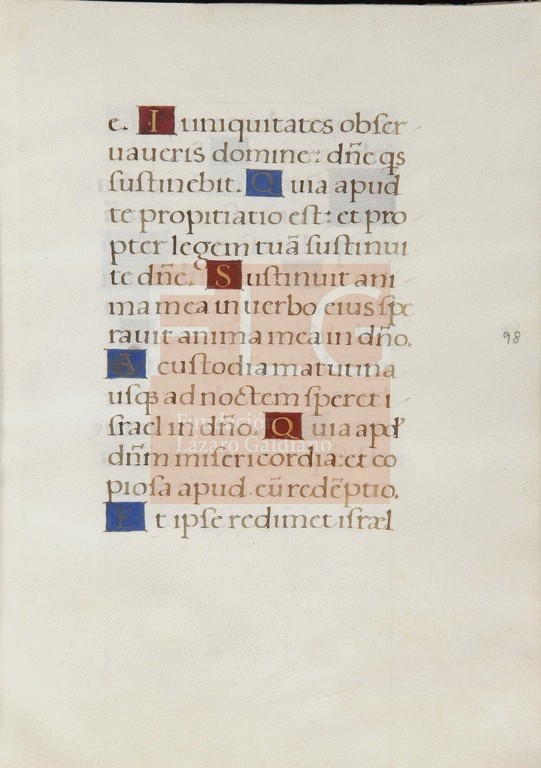 e. I iuniquitates obſer
uaueris domine: dn̄e qs
ſuſtinebit. Q uia apud
te propitiatio eſt: et pro
pter legem tuā ſuſtinui
te dn̄e. S uſtinuit ani
ma mea in uerbo eius ſpe
rauit anima mea in dn̄o.
A cuſtodia matutina
uſqꝫ ad noctem ſperet i
ſrael in dn̄o. Q uia apd̓
dn̄m miſericordia: et co
pioſa apud eū redēptio.
E t ipſe redimet iſræl
98
FLG
Fundación
Lázaro Galdiano